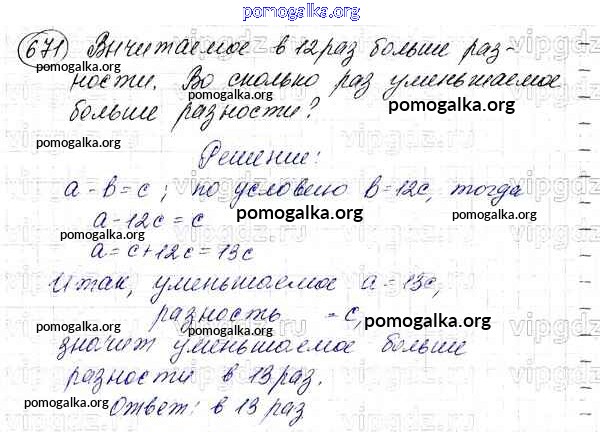 pomogalka.org
671 Вычитаемое в 12 раз больше раз-
pomogalka.org
ности. Во сколько раз уменьшаемое
pomogalka.org
больше разности?
pomogalka.org
Решение:
pomogalka.org
a - в = c ; по условию в = 12c, тогда
a - 12c = c
pomogalka.org pomogalka.org
a = c + 12c = 13c
pomogalka.org
Итак, уменьшаемое a = 13c,
разность = c,
pomogalka.org pomogalka.org
значит уменьшаемое больше
разности в 13 раз.
pomogalka.org
Ответ: в 13 раз
pomogalka.org